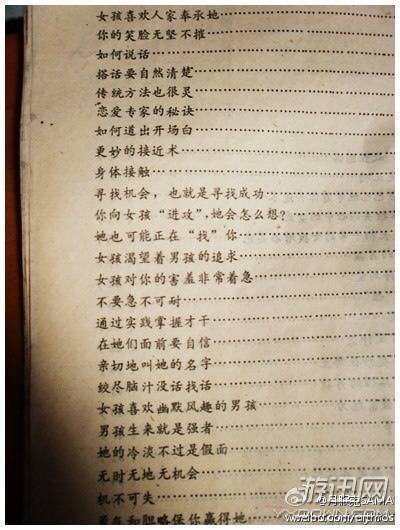 女孩喜欢人家奉承她……………………
你的笑脸无坚不摧……………………
如何说话……………………
搭话要自然清楚……………………
传统方法也很灵……………………
恋爱专家的秘诀……………………
如何道出开场白……………………
更妙的接近术……………………
身体接触……………………
寻找机会，也就是寻找成功……………………
你向女孩“进攻”，她会怎么想？……………………
她也可能正在“找”你……………………
女孩渴望着男孩的追求……………………
女孩对你的害羞非常着急……………………
不要急不可耐……………………
通过实践掌握才干……………………
在她们面前要自信……………………
亲切地叫她的名字……………………
绞尽脑汁没话找话……………………
女孩喜欢幽默风趣的男孩……………………
男孩生来就是强者……………………
她的冷淡不过是假面……………………
无时无地无机会……………………
机不可失……………………
和胆略保你赢得她……………………
游讯网